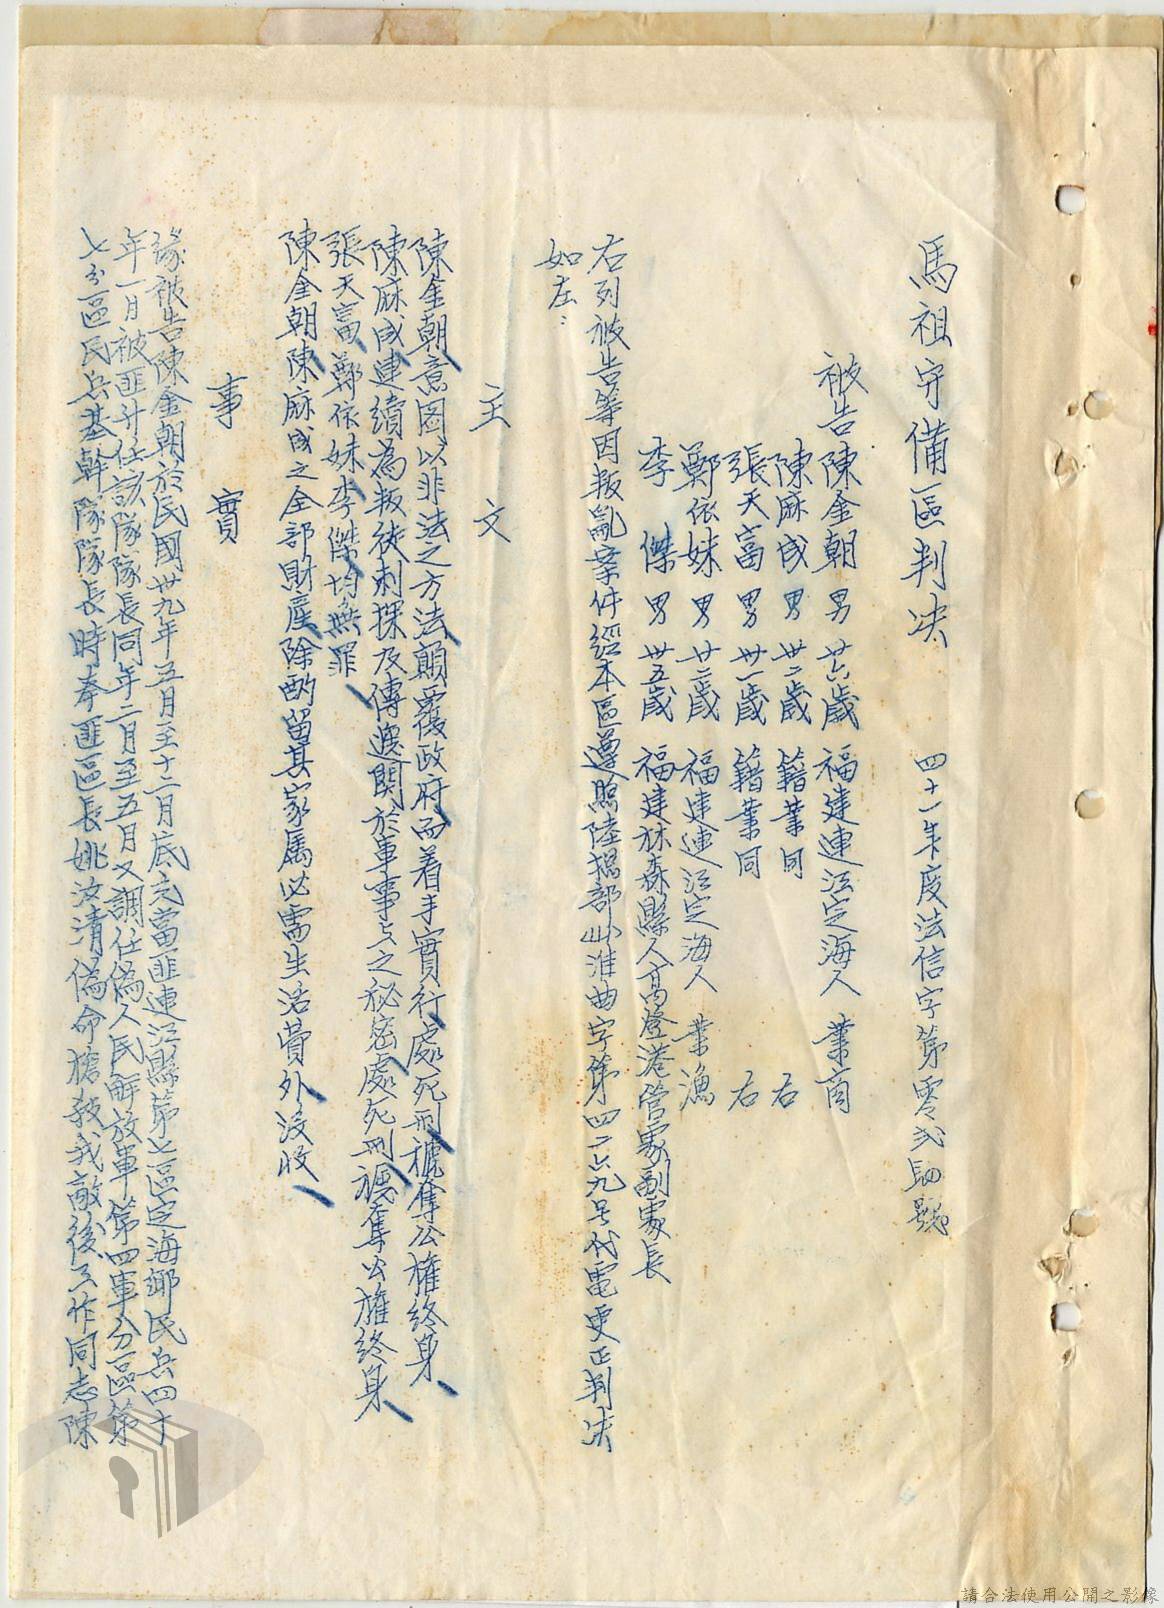 馬祖守備區判決　四十一年度法信字第零弍肆號
被告陳金朝　男　廿六歲　福建連江定海人　業商
陳麻成　男　卅二歲　籍業同右
張天富　男　卅一歲　籍業同右
鄭依妹　男　廿二歲　福建連江定海人　業漁
李傑　男　卅五歲　福建林森縣人高登港管處副處長
右列被告等因叛亂案件經本區遵照陸揚部准曲字第四二六九号代電更正判決
如左：
主文
陳金朝意图以非法之方法顛覆政府而着手實行處死刑褫奪公權終身
陳麻成連續為叛徒刺探及傳遞関於軍事上之秘密處死刑褫奪公權終身
張天富鄭依妹李傑均無罪
陳金朝陳麻成之全部財產除酌留其家属必需生活費外沒收
事實
緣被告陳金朝於民國卅九年五月至十二月底充當匪連江縣第七區定海鄉民兵四十
年一月被匪升任該隊隊長同年二月至五月又調任偽人民解放軍第四軍分區第
七分區民兵基幹隊隊長時奉匪區長姚汝清偽命槍殺我敵後工作同志陳
請合法使用公開之影像